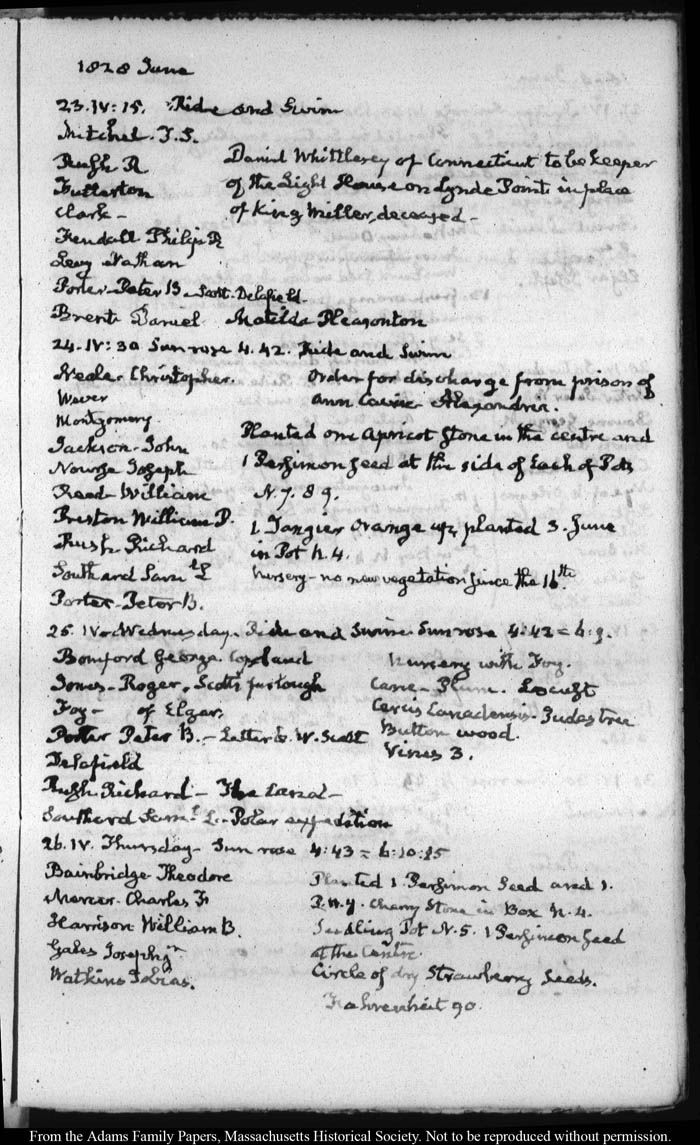 1828 June
23. IV: 15. Ride and Swim
Mitchel. T. S.
Rush R
Fullerton
Clark -
Daniel Whittlesey of Connecticut to be keeper
of the Light House on Lynde Point in place
of King Miller, deceased -
Kendall Philip R
Levy Nathan
Porter Peter B - Delafield.
Brent Daniel. Matilda Pleasonton
24. IV: 30 Sun rose 4.42. Ride and Swim
Neale Christopher.
Weaver
Montgomery
Jackson John
Nourse Joseph
Read William
Preston William P.
Rush Richard
Southard Saml L
Porter Peter B.
Order for discharge from prison of
Ann Alexandria.
Planted one Apricot Stone in the centre and
1 Persimon seed at the side of Each of Pots
N. 7. 8 9.
1 Tangier Orange up, planted 3. June
in Pot N. 4.
Nursery - no new vegetation since the 16th
25. IV. Wednesday. Ride and Swim. Sun rose 4:42 = 6:9.
Bomford George. Copeland
Jones - Roger. Scott's furlough
Foy - of Elgar.
Porter Peter B. - Letter to W. Scott
Delafield
Rush Richard - The Canal -
Southard Saml L. - Polar expedition
Nursery with Foy.
Cane - Plum. Locust
Cercis Canadensis. Judas tree
Button wood.
Vines 3.
26. IV. Thursday - Sun rose 4:43 = 6:10:25
Bainbridge Theodore
Mercer Charles F
Harrison William B.
Gales Joseph jr
Watkins Tobias.
Planted 1 Persimon Seed and 1.
Cherry Stone in Box N. 4.
Seedling Pot N. 5. 1 Persimon seed
at the Centre.
Circle of dry Strawberry Seeds.
Fahrenheit 90.
From the Adams Family Papers, Massachusetts Historical Society. Not to be reproduced without permission.